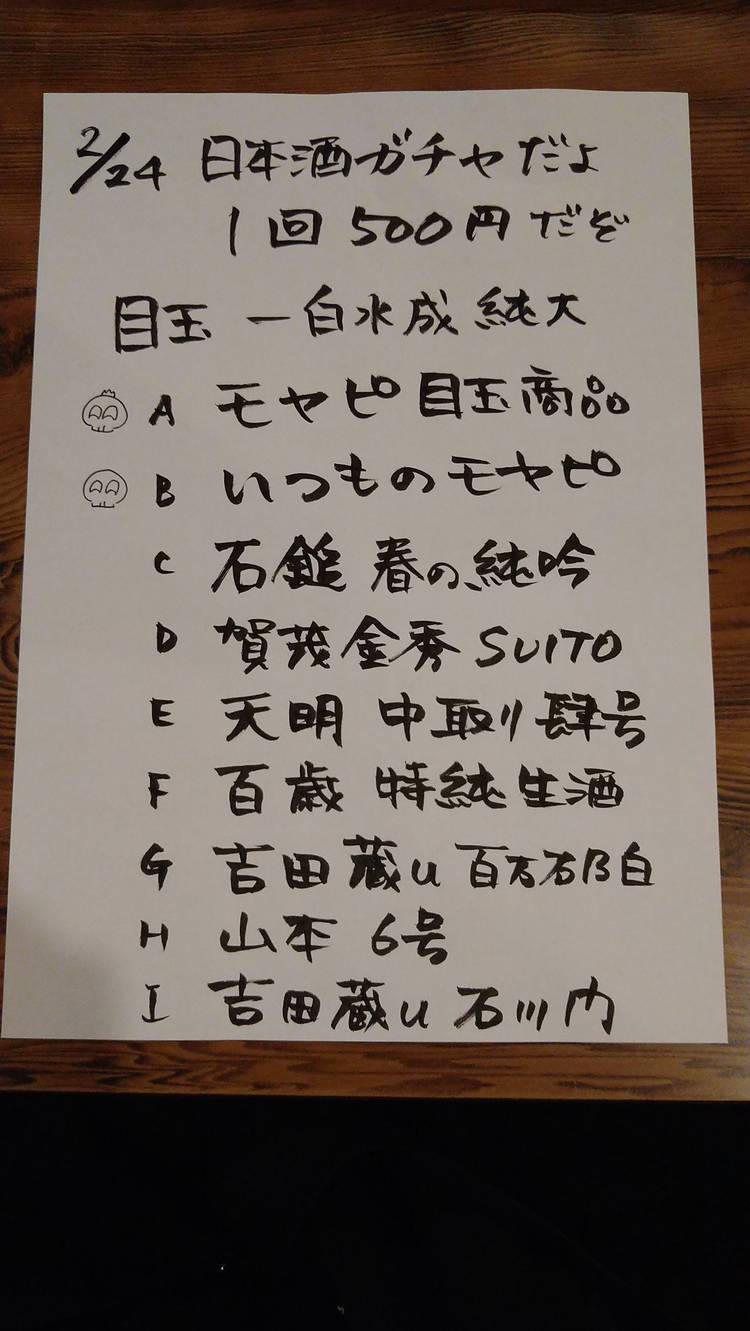 2/24 日本酒ガチャだよ
1回 500円だぞ
目玉 一白水成 純大
A モヤピ 目玉商品
B いつものモヤピ
C 石鎚 春の、純吟
D 賀茂金秀 SUITO
E 天明 中取り 肆号
F 百歳 特純生酒
G 吉田蔵u 百万石乃白
H 山本 6号
I 吉田蔵u 石川門